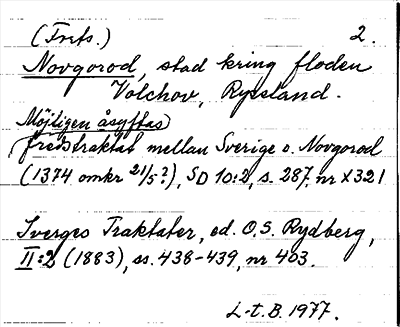 (Forts.) 2.
Novgorod, stad kring floden
Volchov, Ryssland.
Möjligen åsyftas
fredstraktat mellan Sverige o. Novgorod
(1374 omkr 21/5?), SD 10:2, s. 287, nr X321
Sverges Traktater, ed. O.S. Rydberg,
II:2 (1883), ss. 438-439, nr 403.
L-t. B. 1977.